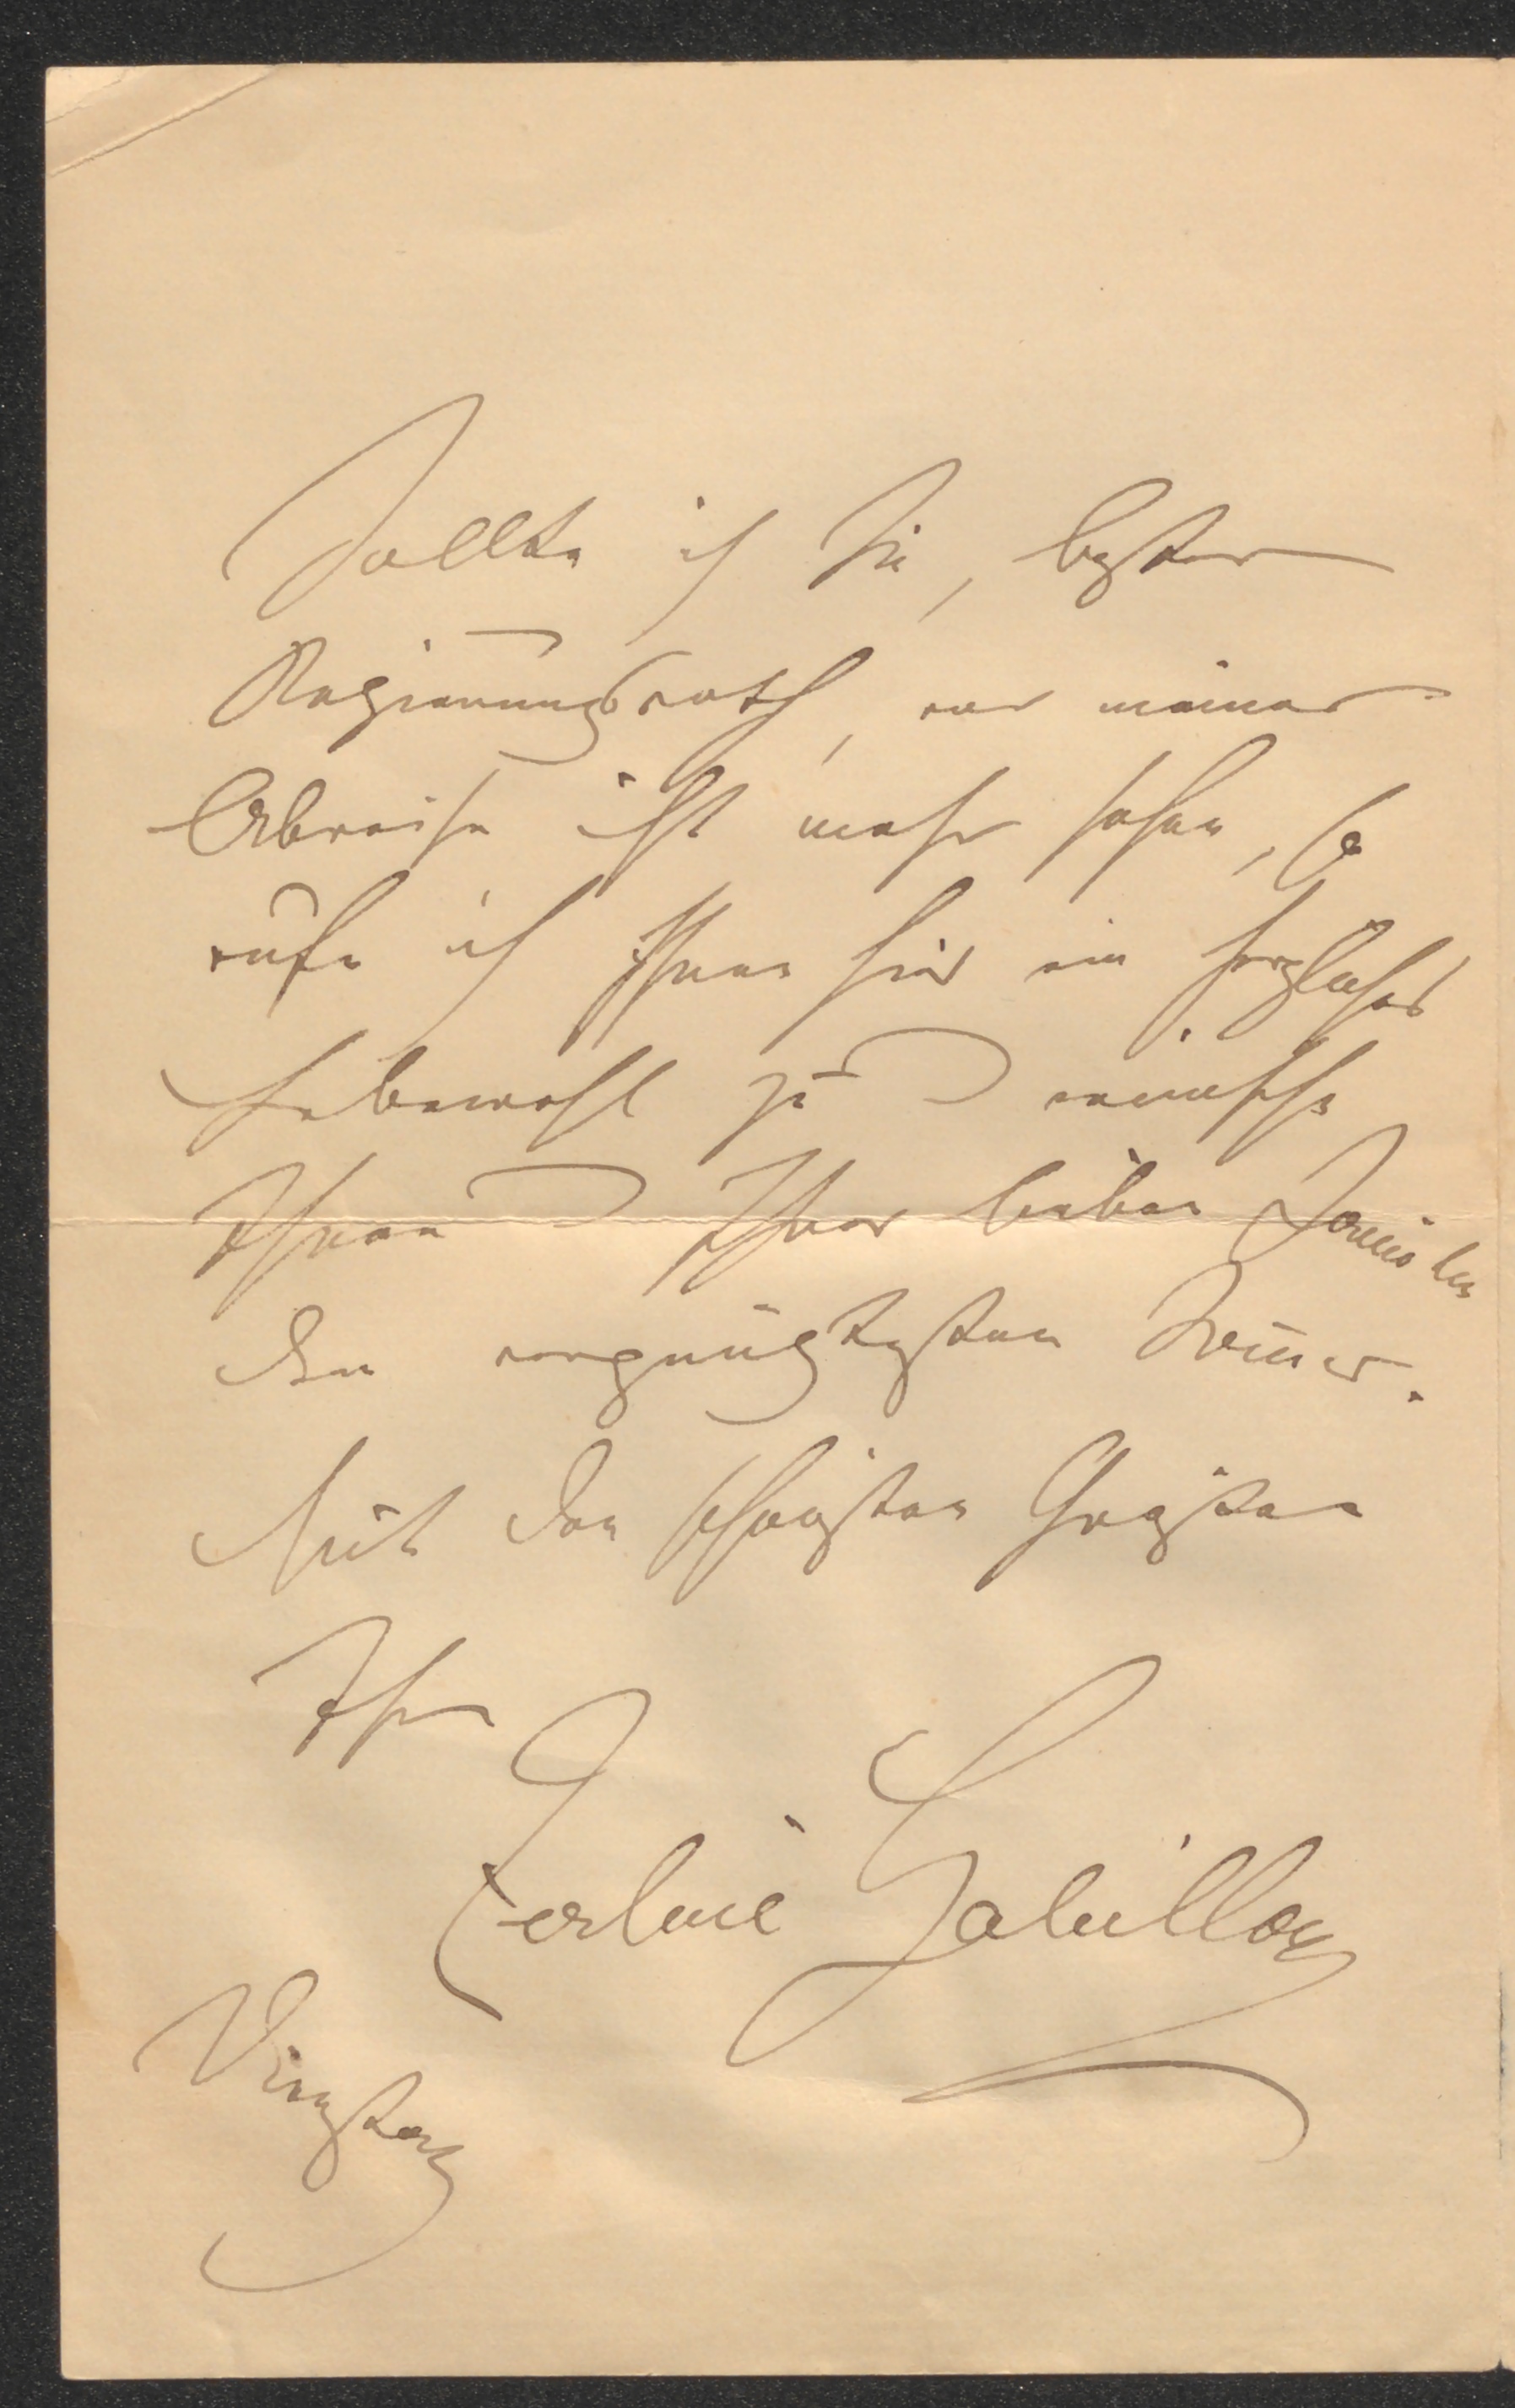 Sollte ich Sie, bester
Regierungsrath, vor meiner
Abreise nicht mehr sehen, so
rufe ich Ihnen hier ein herzliches
Lebewohl zu u wünsche
Ihnen u Ihrer lieben Familie
den vergnügtesten Sommer.
Mit den schönsten Grüßen
Ihre
Zerline Gabillon
Dienstag